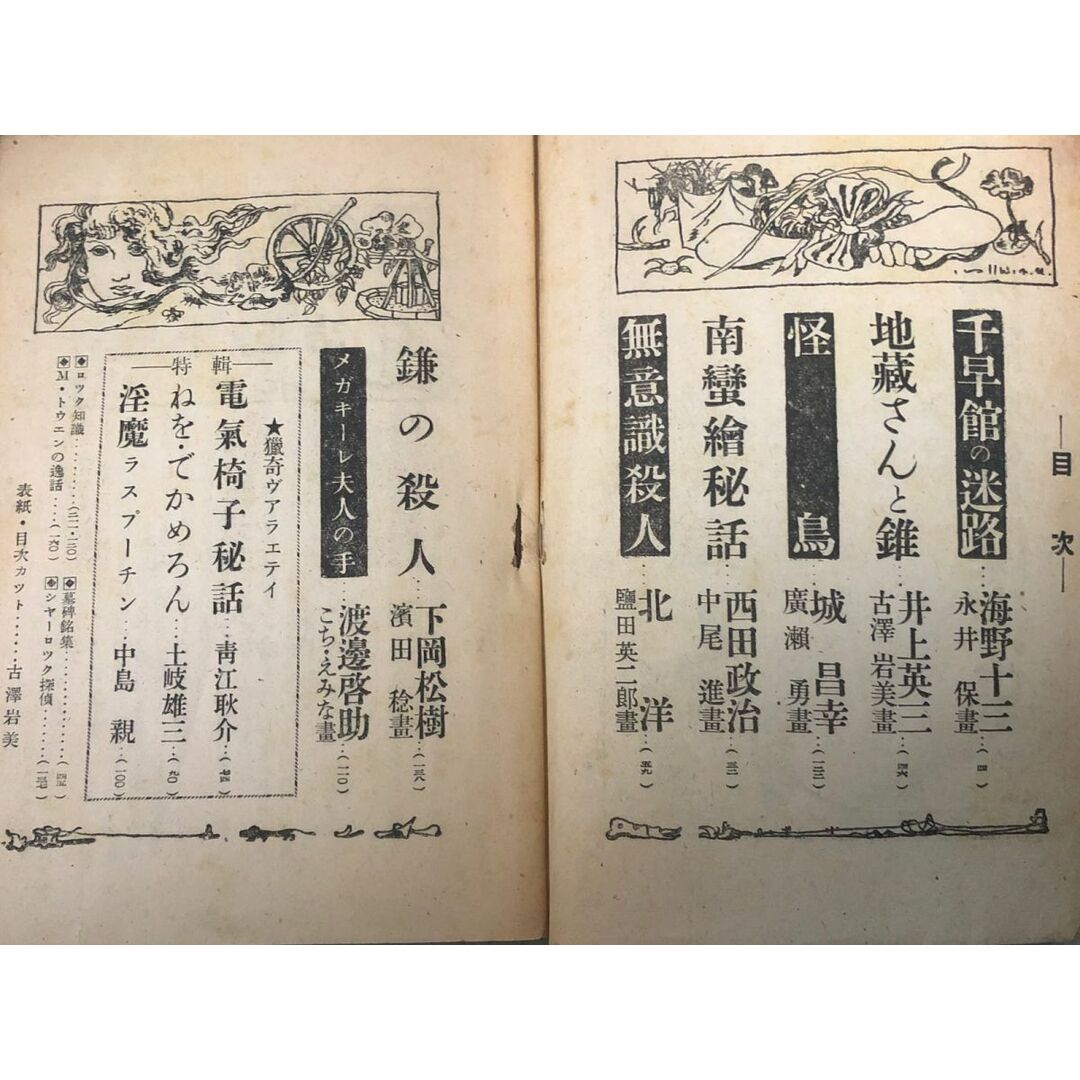 目次
千早館の迷路
海野十三
永井保畫
(四)
地藏さんと錐
井上英三
古澤岩美畫
(四六)
怪鳥
城昌幸
廣瀬勇畫
南蠻繪秘話
西田政治
中尾進畫
(三二)
無意識殺人
北洋
鹽田英二郎畫
(五九)
鎌の殺人
下岡松樹
濱田稔畫
(一三八)
メガキーレ夫人の手
渡邊啓助
こち・えみな畫
(一一〇)
特輯
★獵奇ヴアラエテイ
電氣椅子秘話
靑江耿介
(七四)
ねを・でかめろん
土岐雄三
(九〇)
淫魔ラスプーチン
中島親
(一〇〇)
ロツク知識
M・トウエンの逸話
墓碑銘集
シヤーロツク探偵
表紙・目次カツト……古澤岩美